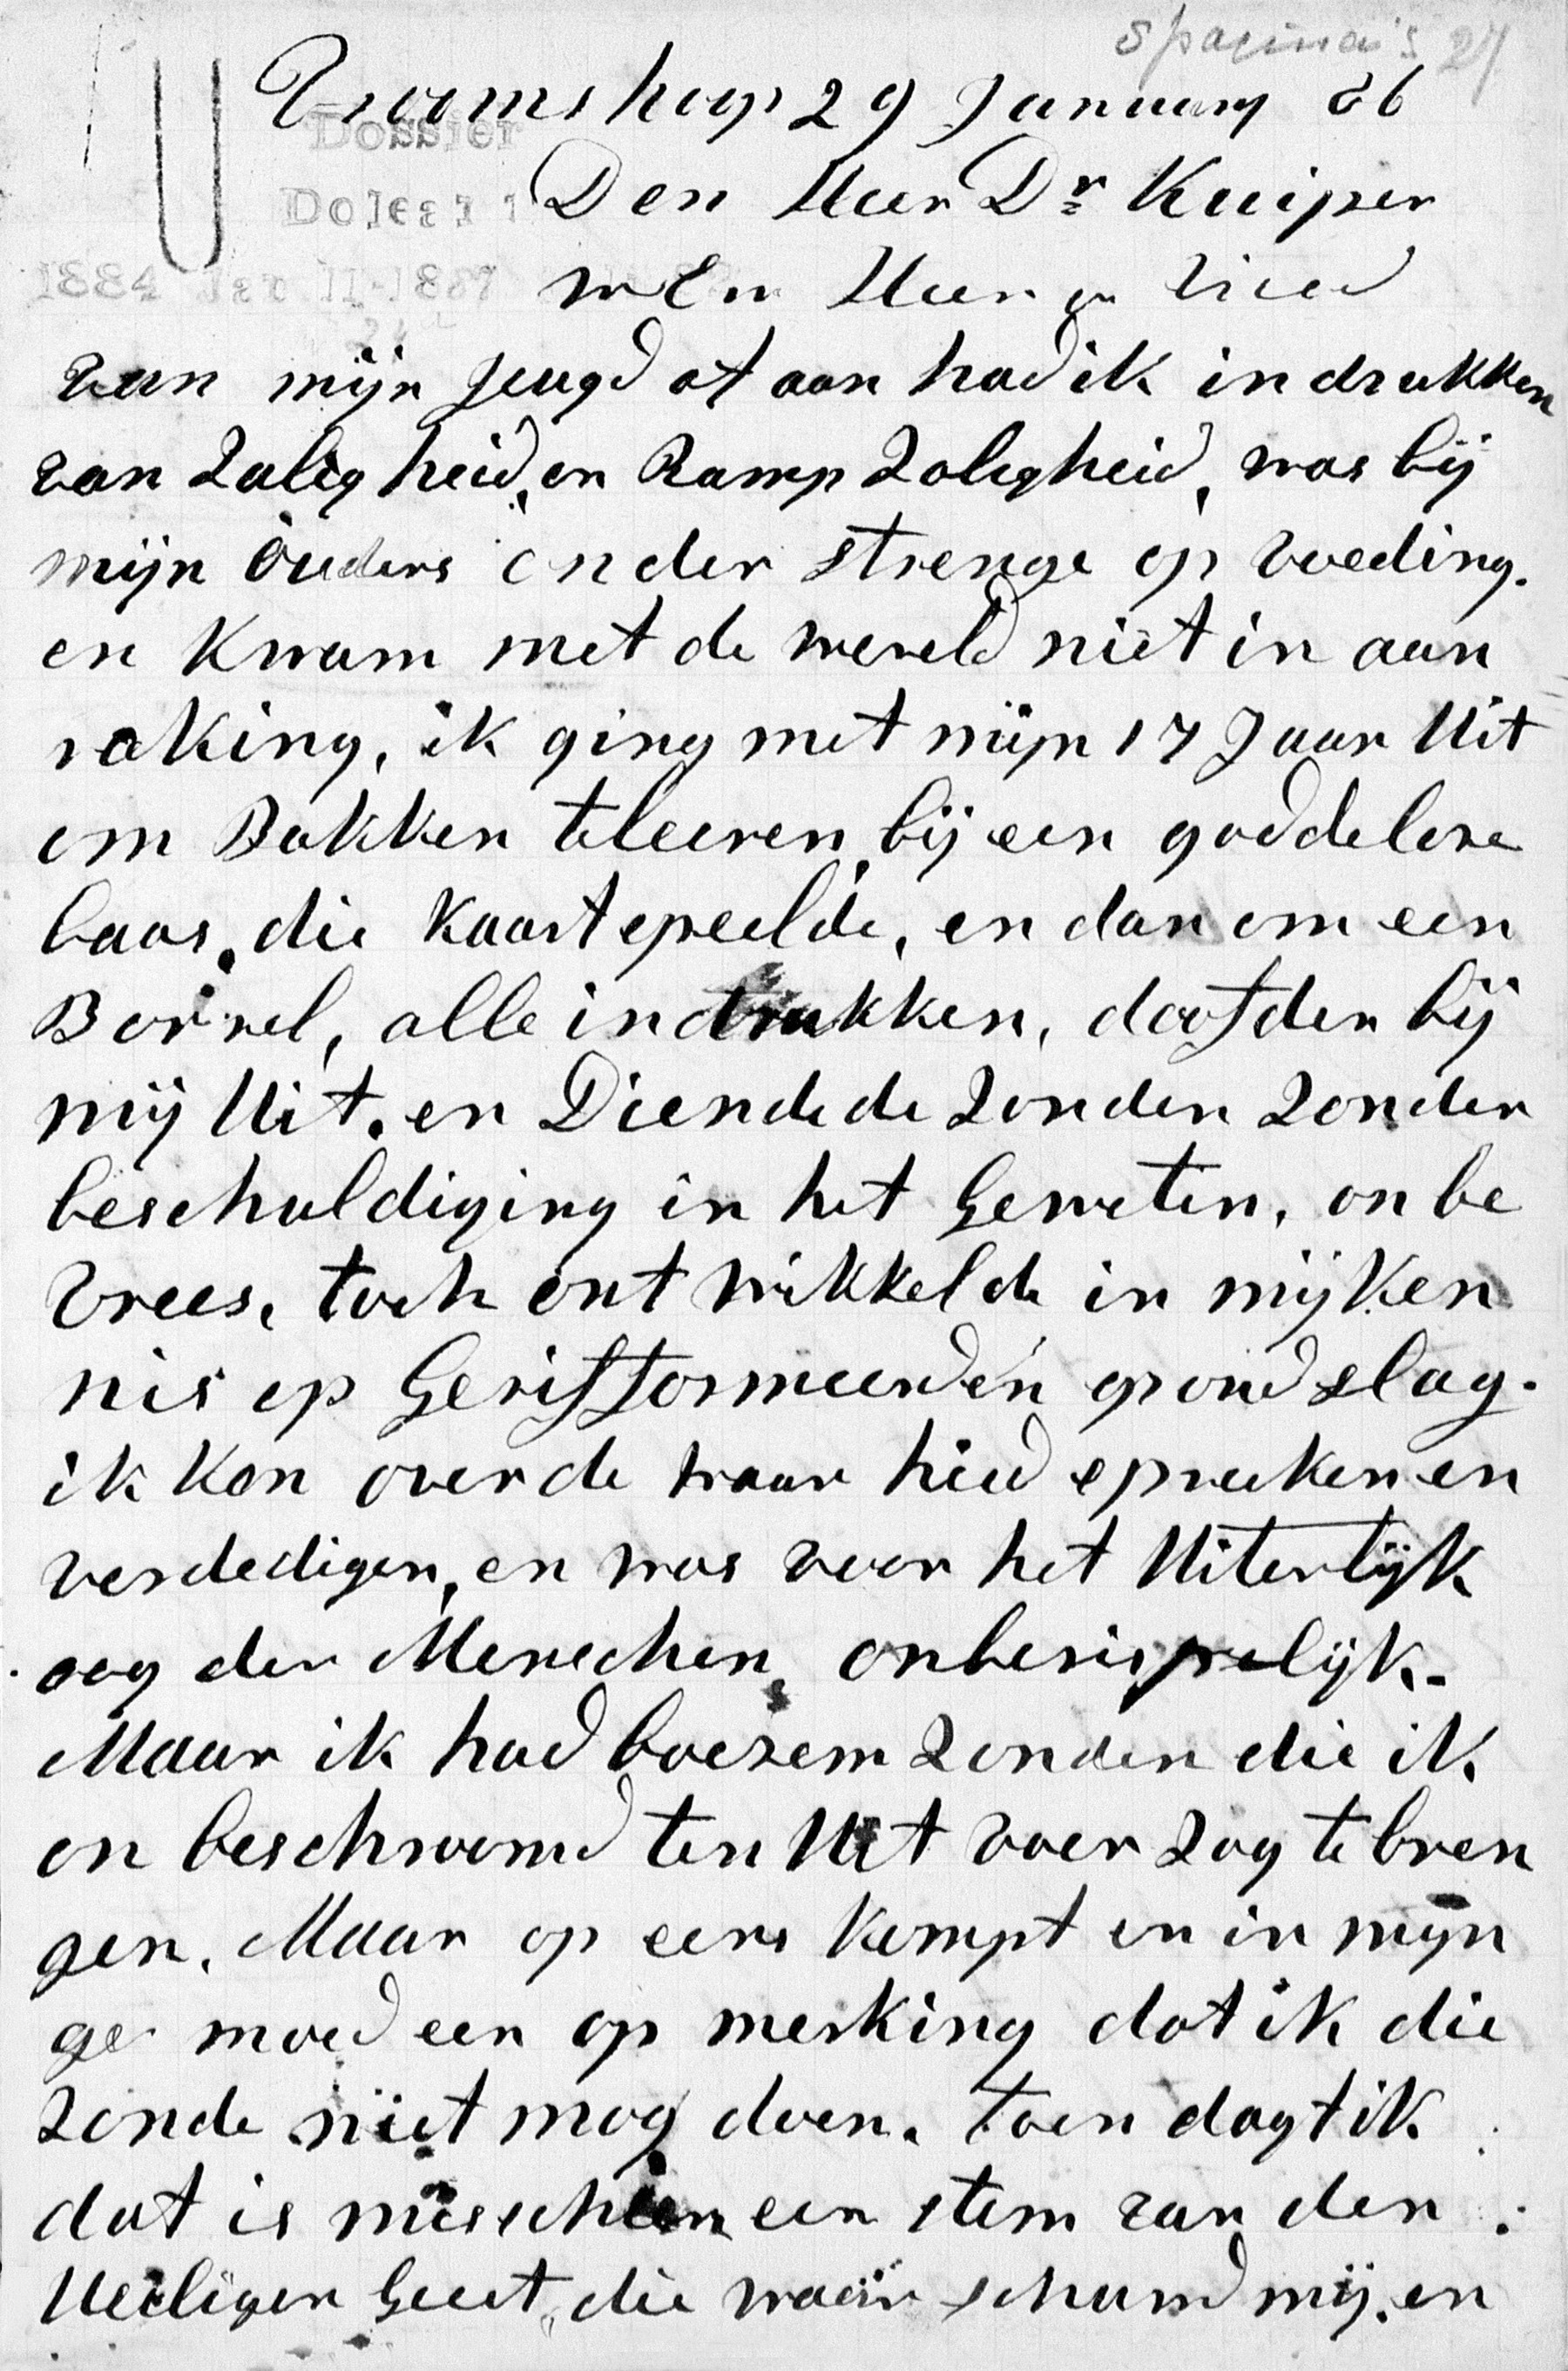 5 pagina's 27
Vroomshoop 29 January 86
Dossier
Den Heer Dr Kuiper
Doleantie
mEn Heer en Vried
1884 Jan 11-1887
van mijn Jeugd af aan had ik in drukken
van Zalig heid, en Ramp Zaligheid, was bij
mijn Ouders onder strenge op voeding.
en Kwam met de wereld niet in aan
raking, ik ging met mijn 17 Jaar Uit
om Bakken te leeren, bij een goddelose
baas, die kaart speelde, en dan om een
Borrel, alle indrukken, doofden bij
mij Uit. en Diende de Zonden Zonder
beschuldiging in het Geweten, on be
vrees, toch ont wikkelde in mij Ken
nis op Gerifformeerden grond slag.
ik Kon over de waar hied spreeken en
verdedigen, en was voor het Uiterlijk
oog der Menschen, onberispelijk.
Maar ik had boezem Zonden die ik
on beschroomd ten Uit voer Zog te bren
gen. Maar op eens kompt er in mijn
ge moed een op merking dat ik die
Zonde niet mog doen. toen dagt ik
dat is misschien een stem van den
Heiligen Geest, die waar schund mij. en